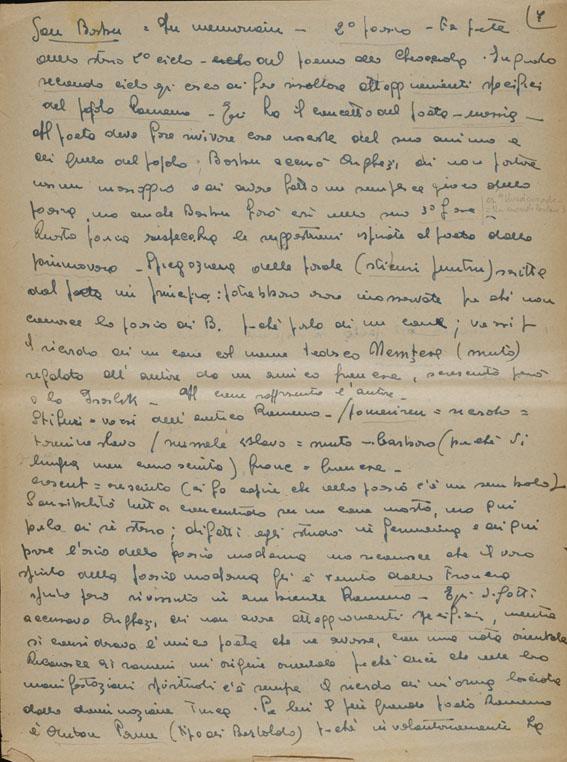 7
Jon Barbu = In memoriam - 2° poesia - Fa parte
dello stesso 2° ciclo - del poema della . In questo
secondo ciclo egli cerca di far risaltare atteggiamenti specifici
del popolo Romeno - Egli ha il concetto del poeta-messia -
Il poeta deve fare rivivere cose nascoste del suo animo e
di quello del popolo; Barbu accusò Arghezi, di non portare
nessun messaggio e di avere fatto un semplice gioco della
poesia, ma anche Barbu farà così nella sua 3° fase
Questa poesia rispecchia le suggestioni ispirate al poeta dalla
primavera - Spiegazione delle parole scritta
dal poeta in principio: potrebbero essere inosservate per chi non
conosce la poesia di B. perché parla di un cane; versi per
il ricordo di un cane col nome tedesco (muto)
regalato all' autore da un amico francese, cresciuto però
a la - Il cane rappresenta l'autore -
= versi dell'antico Romeno - / = ricordo =
termine slavo / slavo = muto - barbaro (perché di
lingua non conosciuta) = francese -
crescut = cresciuto (ci fa capire che nella poesia c'è un simbolo)
Sensibilità tutta concentrata su un cane morto, ma qui
parla di sé stesso; difatti egli studiò in Germania e di qui
prese l'inizio della poesia moderna ma riconosce che il vero
spirito della poesia moderna gli è venuto dalla Francia
spirito però rivissuto in ambiente Romeno - Egli difatti
accusava Arghezi, di non avere atteggiamenti specifici, mentre
si considerava l'unico poeta che ne avesse, con una nota orientale
Riconosce ai rumeni un'origine orientale perché dice che nelle loro
manifestazioni spirituali c'è sempre il ricordo di un'orma lasciata
dalla dominazione Turca - Per lui il più grande poeta Romeno
è Anton Pann (tipo di Bertoldo) perché involontariamente ha